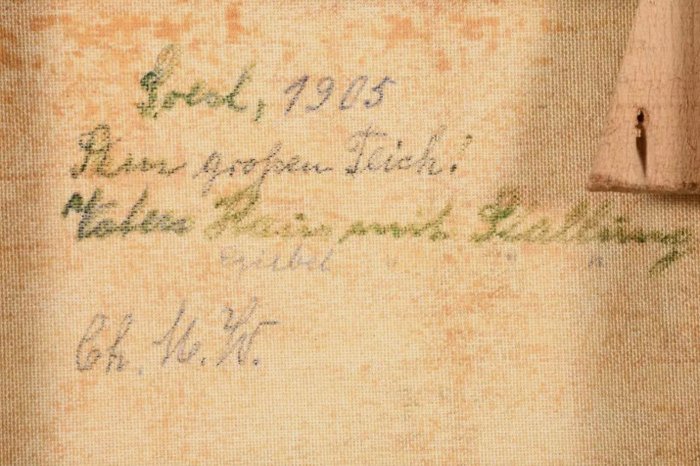 Soest, 1905
Am großen Teich!
Haus mit Stallung
Giebel " " "
Ch. M. W.